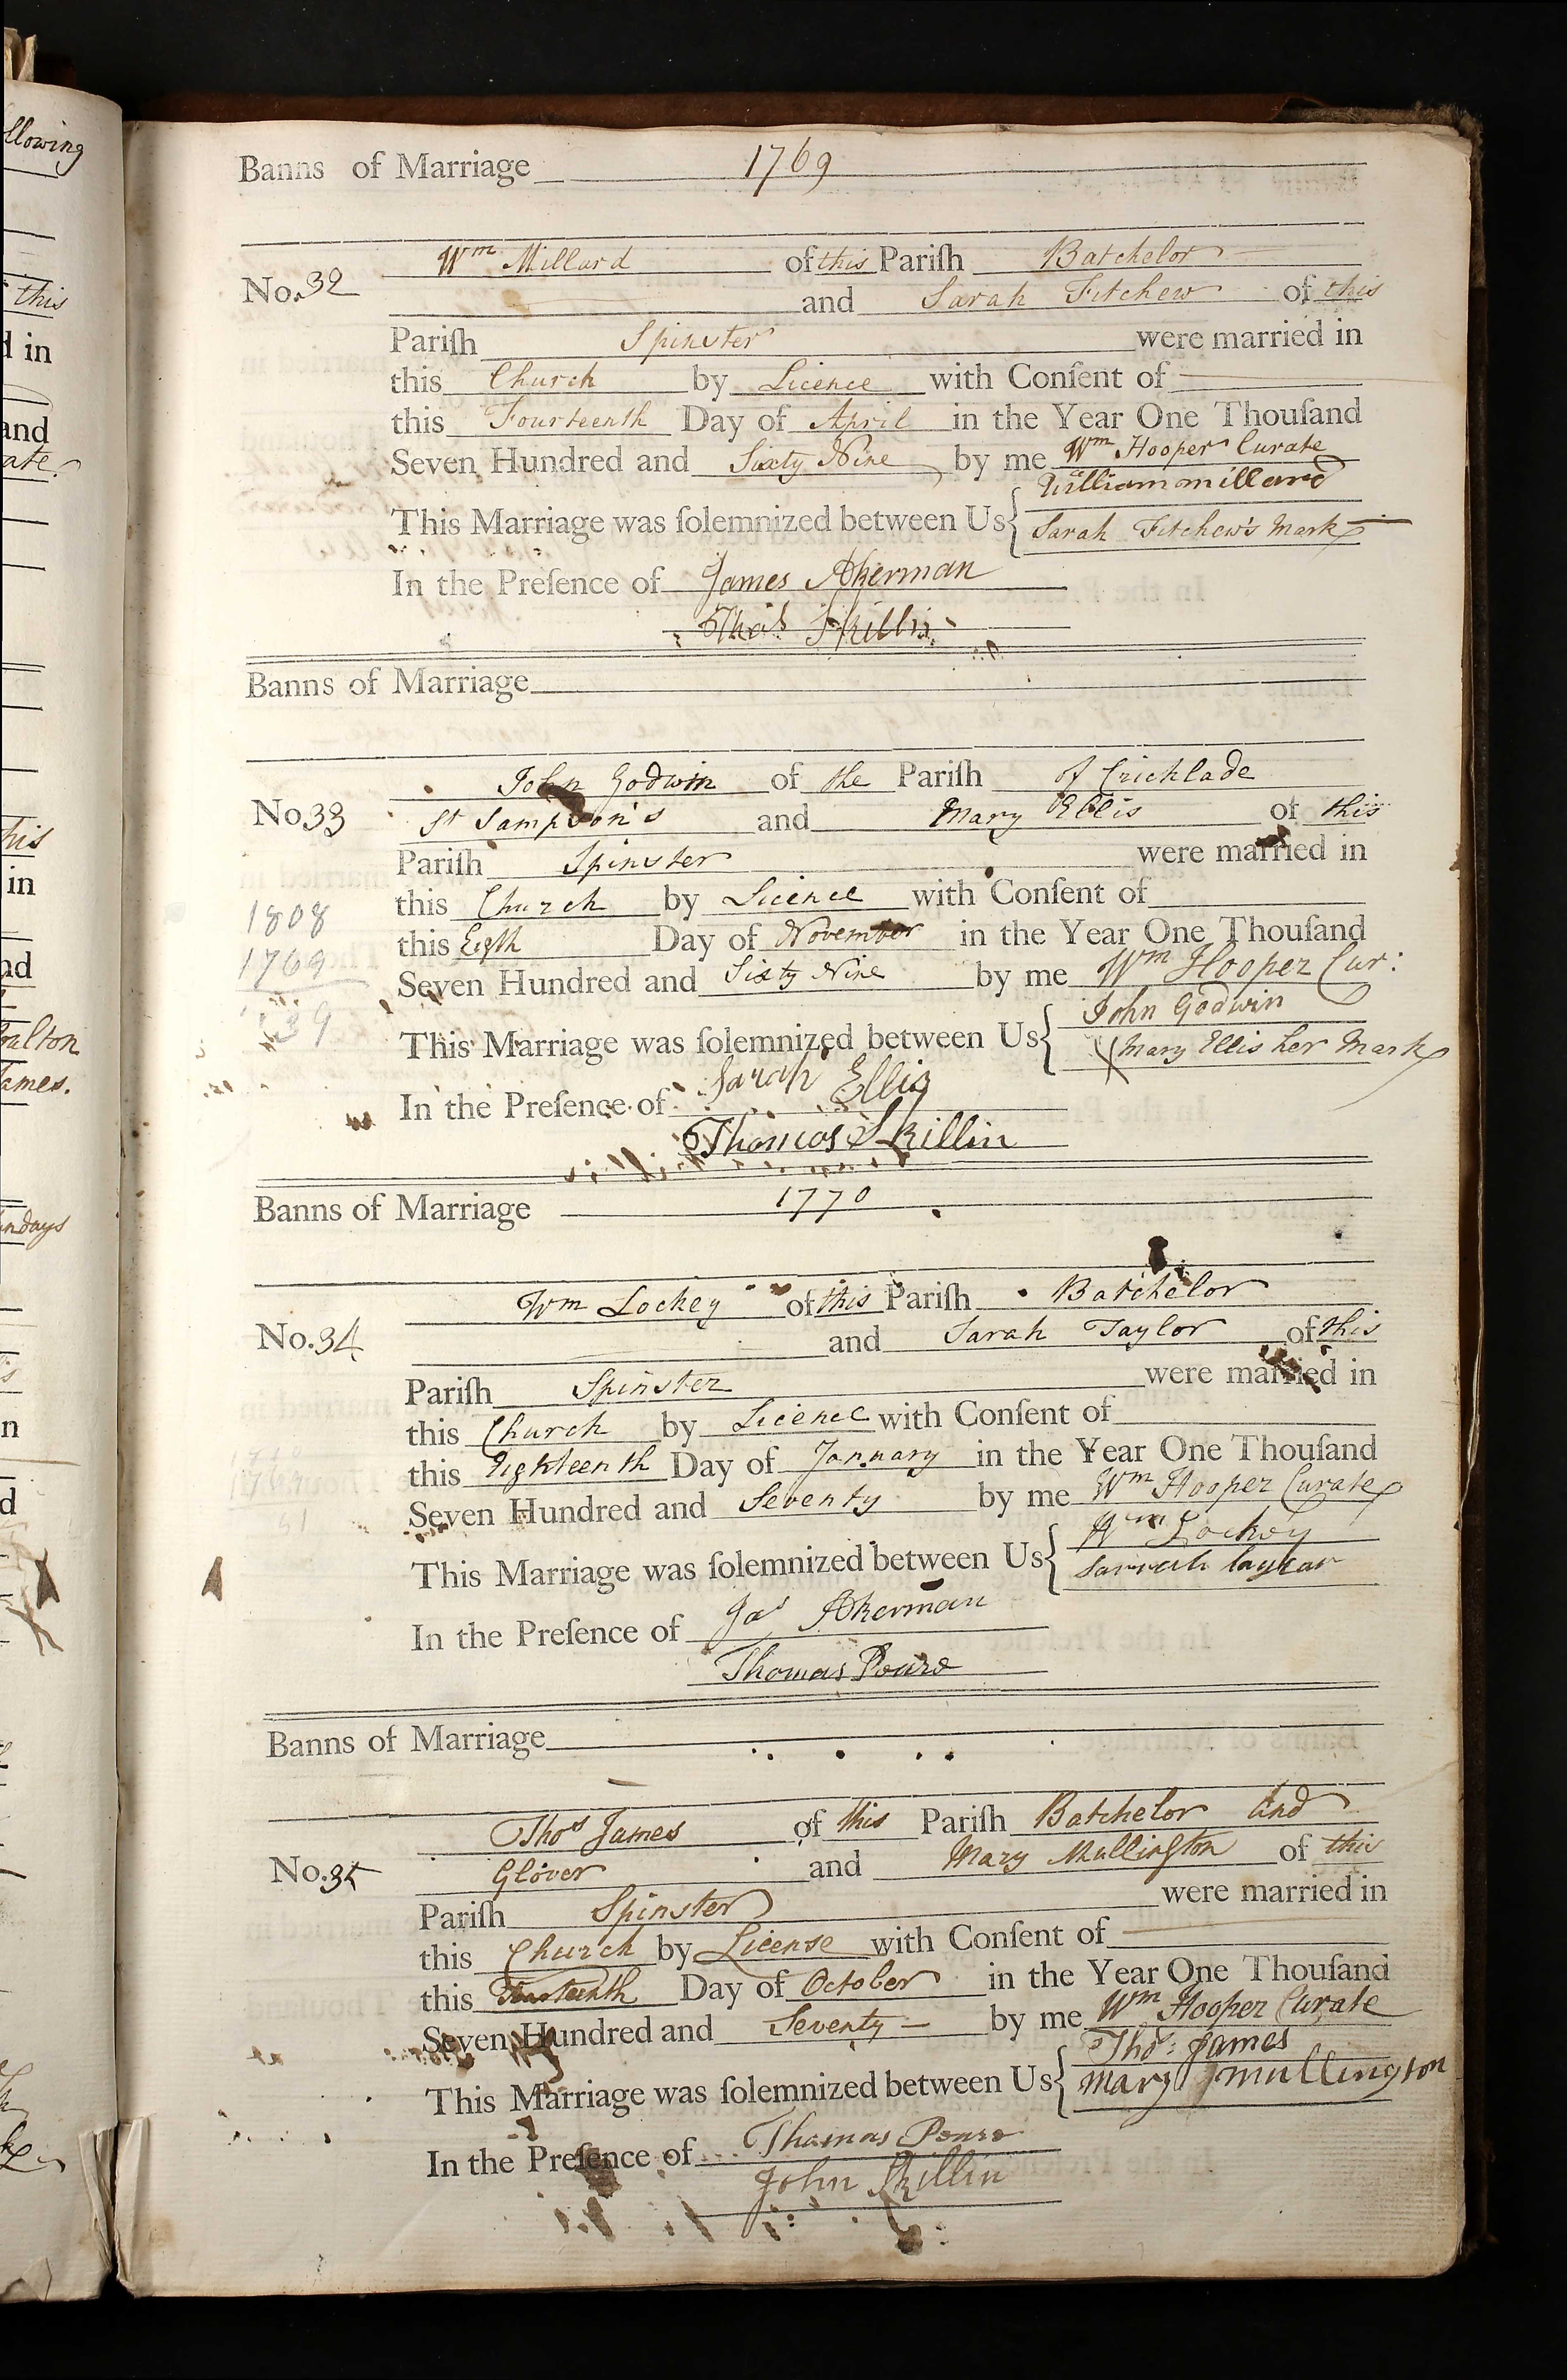 llowing
this
d in
and
ate
his
in
nd
alton
ames.
ndays
n
d
Banns of Marriage 1769
Wm Millard of this Pariſh Batchelor
No. 32 and Sarah Fitchew of this
Pariſh Spinster were married in
this Church by Licence with Conſent of
this Fourteenth Day of April in the Year One Thouſand
Seven Hundred and Sixty Nine by me Wm Hooper Curate
William millard
This Marriage was ſolemnized between Us
Sarah Fitchew's Mark
In the Preſence of James Akerman
Thos Skillin
Banns of Marriage
John Godwin of the Pariſh of Cricklade
No. 33 St Sampson's and Mary Ellis of this
Pariſh Spinster were married in
this Church by Licence with Conſent of
1808
this Eigth Day of November in the Year One Thouſand
1769
Seven Hundred and Sixty Nine by me Wm Hooper Cur:
39
John Godwin
This Marriage was ſolemnized between Us
Mary Ellis her Mark
In the Preſence of Sarah Ellis
Thomas Skillin
Banns of Marriage 1770
Wm Lockey of this Pariſh Batchelor
No. 34 and Sarah Taylor of this
Pariſh Spinster were married in
this Church by Licence with Conſent of
this Eighteenth Day of January in the Year One Thouſand
Seven Hundred and Seventy by me Wm Hooper Curate
Wm Lockey
This Marriage was ſolemnized between Us
In the Preſence of Jas Akerman
Thomas Pears
Banns of Marriage
Thos James of this Pariſh Batchelor and
No. 35 Glover and Mary Mullington of this
Pariſh Spinster were married in
this Church by License with Conſent of
this Day of October in the Year One Thouſand
Seven Hundred and Seventy by me Wm Hooper Curate
Thos: James
This Marriage was ſolemnized between Us
Mary mullington
In the Preſence of Thomas Pears
John Skillin